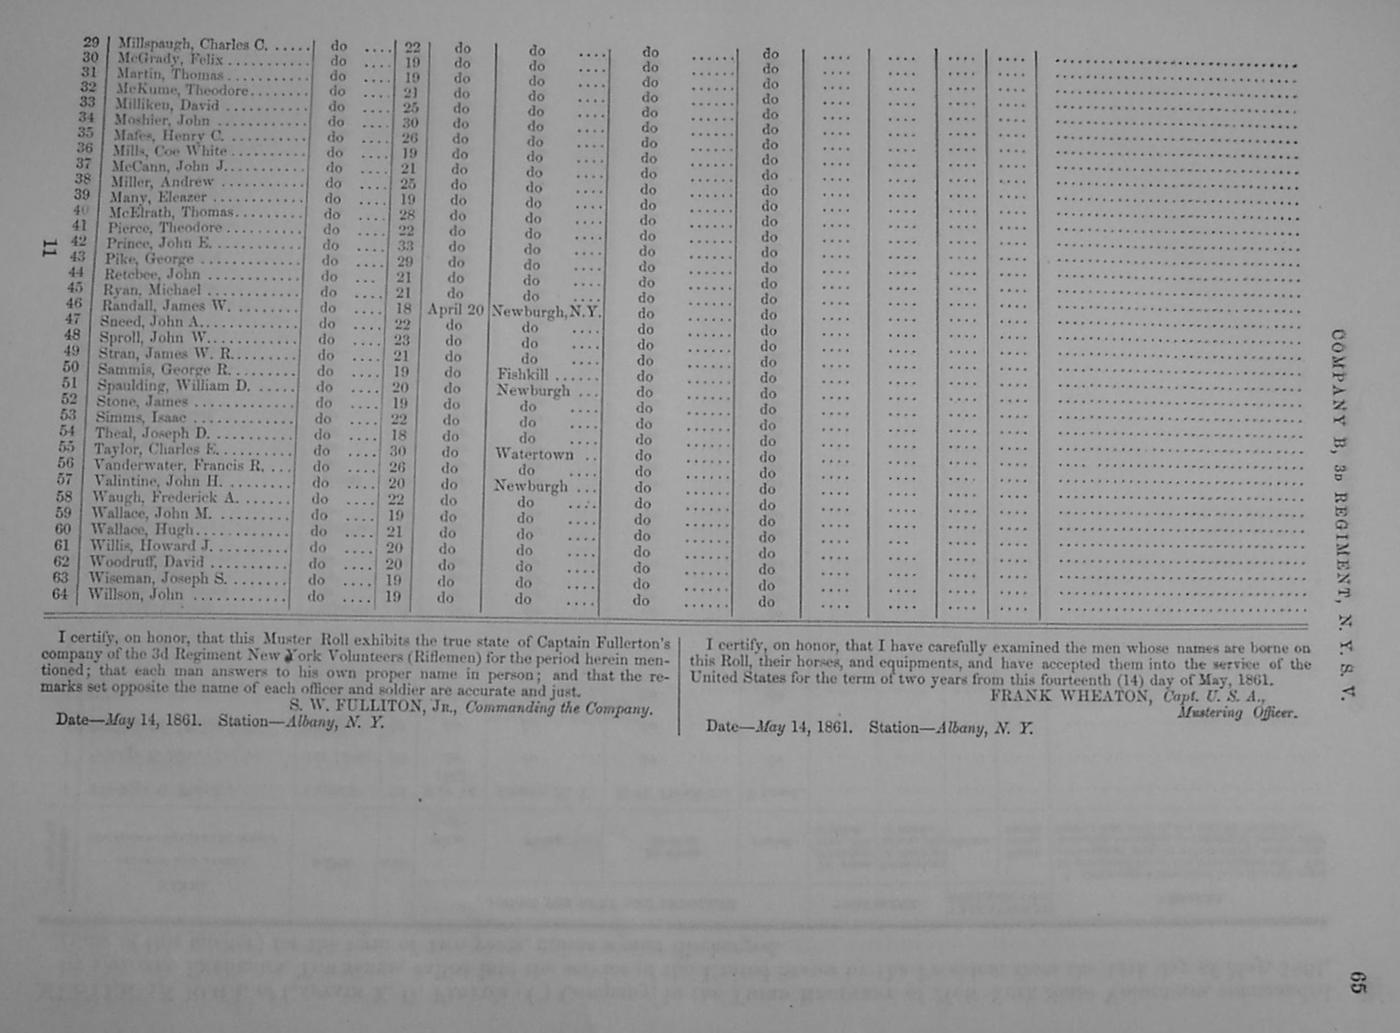 29 Millspaugh, Charles C. ..... do .... 22 do do .... do ...... do .... .... .... .... ....
30 McGrady, Felix .......... do .... 19 do do .... do ...... do .... .... .... .... ....
31 Martin, Thomas .......... do .... 19 do do .... do ...... do .... .... .... .... ....
32 McKune, Theodore ........ do .... 21 do do .... do ...... do .... .... .... .... ....
33 Milliken, David .......... do .... 25 do do .... do ...... do .... .... .... .... ....
34 Moshier, John ........... do .... 30 do do .... do ...... do .... .... .... .... ....
35 Mafes, Henry C. ......... do .... 26 do do .... do ...... do .... .... .... .... ....
36 Mills, Coe White .......... do .... 19 do do .... do ...... do .... .... .... .... ....
37 McCann, John J. .......... do .... 21 do do .... do ...... do .... .... .... .... ....
38 Miller, Andrew ........... do .... 25 do do .... do ...... do .... .... .... .... ....
39 Many, Eleazer ............ do .... 19 do do .... do ...... do .... .... .... .... ....
40 McElrath, Thomas ......... do .... 28 do do .... do ...... do .... .... .... .... ....
41 Pierce, Theodore .......... do .... 22 do do .... do ...... do .... .... .... .... ....
42 Prince, John E. ........... do .... 33 do do .... do ...... do .... .... .... .... ....
43 Pike, George ............. do .... 29 do do .... do ...... do .... .... .... .... ....
44 Retebee, John ............ do .... 21 do do .... do ...... do .... .... .... .... ....
45 Ryan, Michael ............ do .... 21 do do .... do ...... do .... .... .... .... ....
46 Randall, James W. ......... do .... 18 April 20 Newburgh, N.Y. do ...... do .... .... .... .... ....
47 Sneed, John A. ............ do .... 22 do do .... do ...... do .... .... .... .... ....
48 Sproll, John W. ........... do .... 23 do do .... do ...... do .... .... .... .... ....
49 Stran, James W. R. ........ do .... 21 do do .... do ...... do .... .... .... .... ....
50 Sammis, George R. ........ do .... 19 do Fishkill ...... do ...... do .... .... .... .... ....
51 Spaulding, William D. ..... do .... 20 do Newburgh ... do ...... do .... .... .... .... ....
52 Stone, James ............. do .... 19 do do .... do ...... do .... .... .... .... ....
53 Simms, Isaac ............. do .... 22 do do .... do ...... do .... .... .... .... ....
54 Theal, Joseph D. .......... do .... 18 do do .... do ...... do .... .... .... .... ....
55 Taylor, Charles E. ......... do .... 30 do Watertown .. do ...... do .... .... .... .... ....
56 Vanderwater, Francis R. ... do .... 26 do do .... do ...... do .... .... .... .... ....
57 Valintine, John H. ........ do .... 20 do Newburgh ... do ...... do .... .... .... .... ....
58 Waugh, Frederick A. ...... do .... 22 do do .... do ...... do .... .... .... .... ....
59 Wallace, John M. ......... do .... 19 do do .... do ...... do .... .... .... .... ....
60 Wallace, Hugh ............ do .... 21 do do .... do ...... do .... .... .... .... ....
61 Willis, Howard J. ......... do .... 20 do do .... do ...... do .... .... .... .... ....
62 Woodruff, David .......... do .... 20 do do .... do ...... do .... .... .... .... ....
63 Wiseman, Joseph S. ....... do .... 19 do do .... do ...... do .... .... .... .... ....
64 Willson, John ............ do .... 19 do do .... do ...... do .... .... .... .... ....
I certify, on honor, that this Muster Roll exhibits the true state of Captain Fullerton's
company of the 3d Regiment New York Volunteers (Riflemen) for the period herein men-
tioned; that each man answers to his own proper name in person; and that the re-
marks set opposite the name of each officer and soldier are accurate and just.
S. W. FULLITON, JR., Commanding the Company.
Date—May 14, 1861. Station—Albany, N. Y.
I certify, on honor, that I have carefully examined the men whose names are borne on
this Roll, their horses, and equipments, and have accepted them into the service of the
United States for the term of two years from this fourteenth (14) day of May, 1861.
FRANK WHEATON, Capt. U. S. A.,
Mustering Officer.
Date—May 14, 1861. Station—Albany, N. Y.
11
COMPANY B, 3D REGIMENT, N. Y. S. V.
65